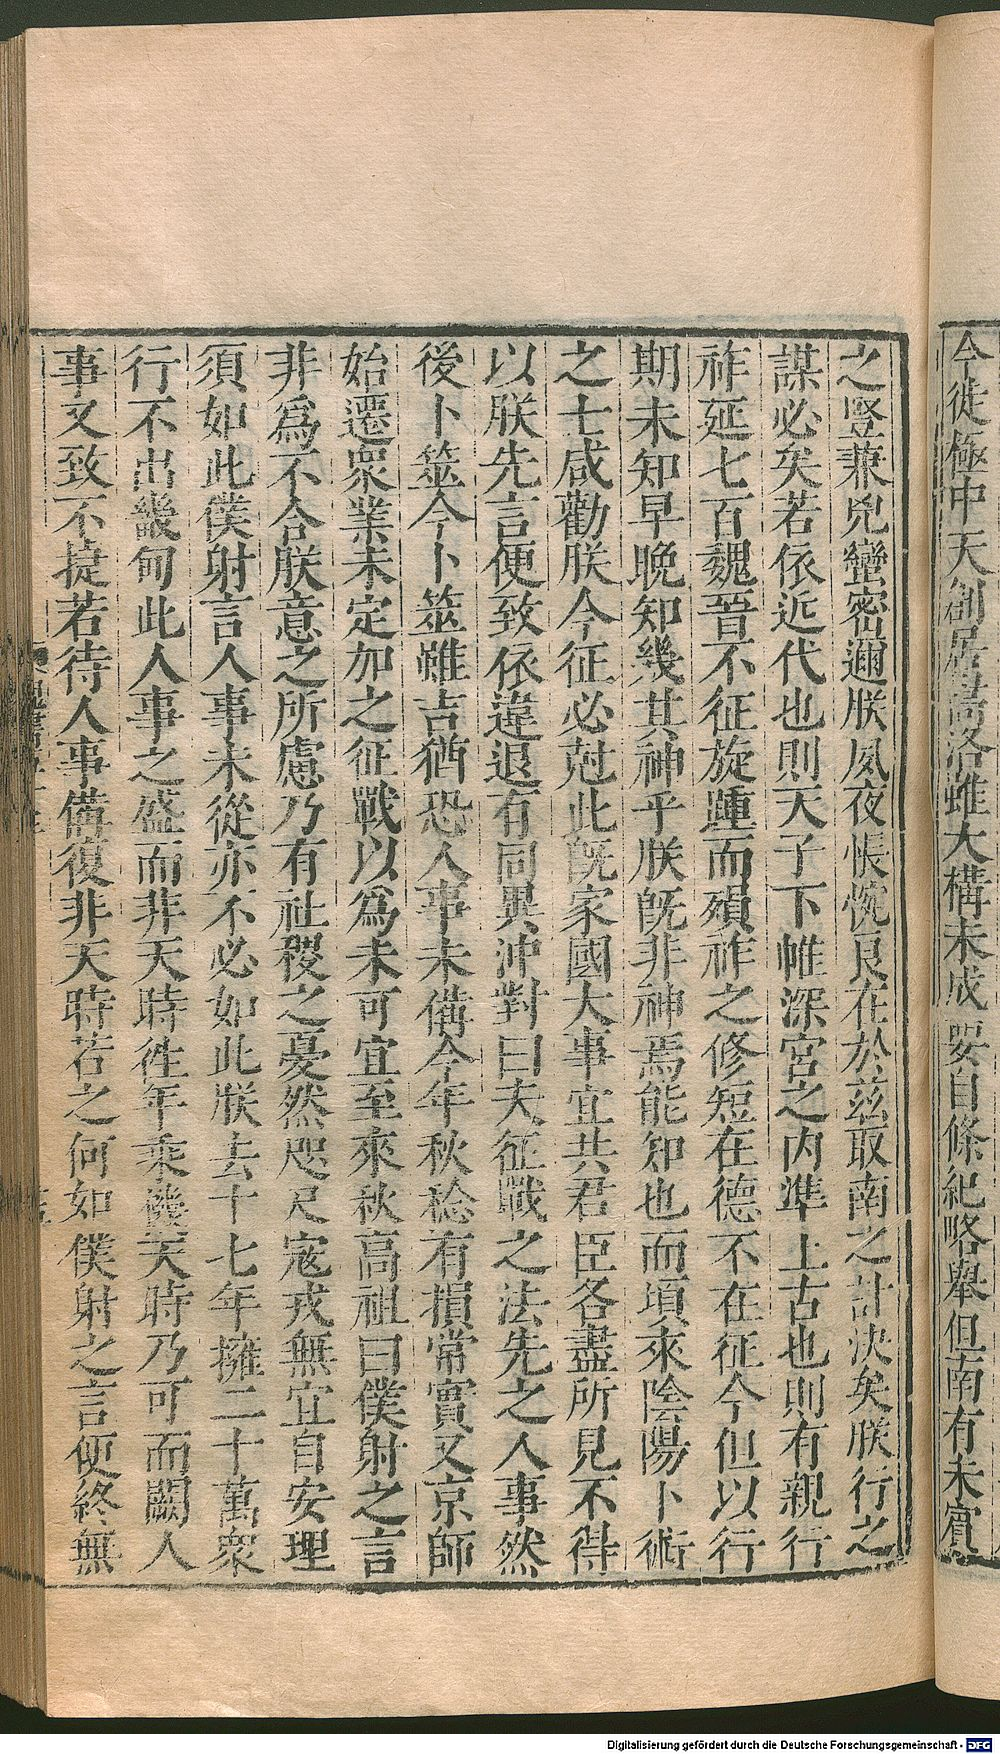 今徙極中天創居嵩洛雖大構未成要自條紀略舉但南有未賓
之豎兼兇蠻密邇朕夙夜悵惋良在於兹取南之計決矣朕行之
謀必矣若依近代也則天子下帷深宮之内準上古也則有親行
祚延七百魏晉不征旋踵而殞祚之修短在德不在征今但以行
期未知早晚知幾其神乎朕旣非神焉能知也而頃來陰陽卜術
之士咸勸朕今征必尅此旣家國大事宜共君臣各盡所見不得
以朕先言便致依違退有同異沖對曰夫征戰之法先之人事然
後卜筮今卜筮雖吉猶恐人事未備今年秋稔有損常實又京師
始遷衆業未定加之征戰以爲未可宜至來秋高祖曰僕射之言
非爲不合朕意之所慮乃有社稷之憂然咫尺寇戎無宜自安理
須如此僕射言人事未從亦不必如此朕去十七年擁二十萬衆
行不出畿甸此人事之盛而非天時徃年乘機天時乃可而闕人
事又致不捷若待人事備復非天時若之何如僕射之言便終無
Digitalisierung gefördert durch die Deutsche Forschungsgemeinschaft - DFG